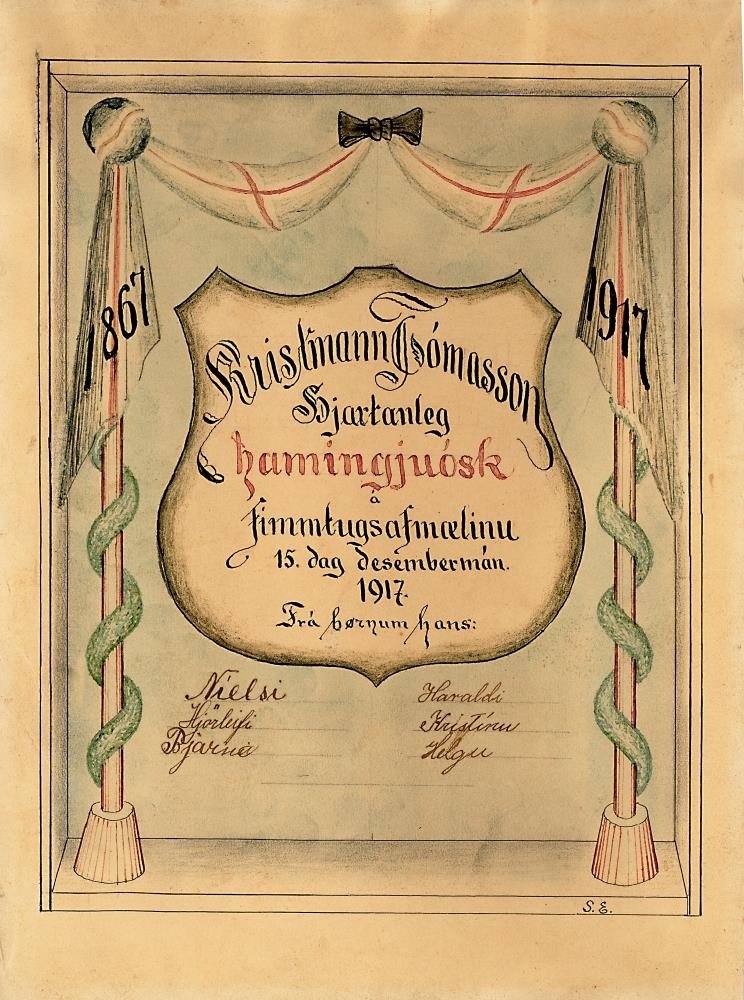 1867
1917
Kristmann Tómasson
Hjartanleg
hamingjuósk
á
fimmtugsafmælinu
15. dag desembermán.
1917.
Frá børnum hans:
Nielsi
Hjörleifi
Bjarna
Haraldi
Kristínu
Helgu
S. E.